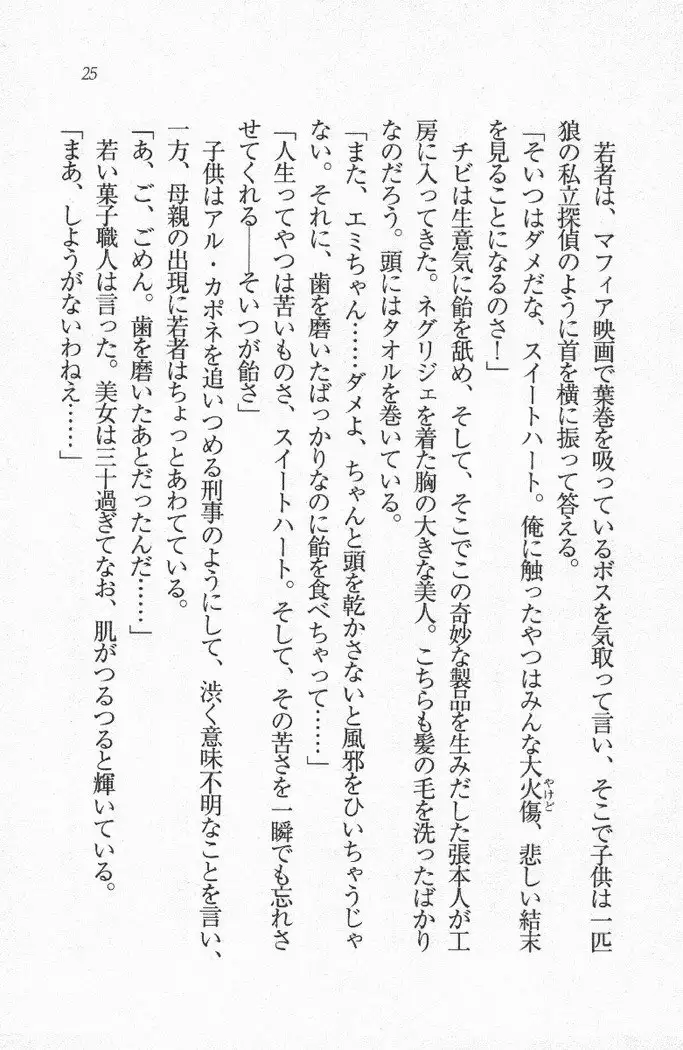 25
若者は、マフィア映画で葉巻を吸っているボスを気取って言い、そこで子供は一匹
狼の私立探偵のように首を横に振って答える。
「そいつはダメだな、スイートハート。俺に触ったやつはみんな大火傷、悲しい結末
やけど
を見ることになるのさ！」
チビは生意気に飴を舐め、そして、そこでこの奇妙な製品を生みだした張本人が工
房に入ってきた。ネグリジェを着た胸の大きな美人。こちらも髪の毛を洗ったばかり
なのだろう。頭にはタオルを巻いている。
「また、エミちゃん……ダメよ、ちゃんと頭を乾かさないと風邪をひいちゃうじゃ
ない。それに、歯を磨いたばっかりなのに飴を食べちゃって……」
「人生ってやつは苦いものさ、スイートハート。そして、その苦さを一瞬でも忘れさ
せてくれる——そいつが飴さ」
子供はアル・カポネを追いつめる刑事のようにして、渋く意味不明なことを言い、
一方、母親の出現に若者はちょっとあわてている。
「あ、ご、ごめん。歯を磨いたあとだったんだ……」
若い菓子職人は言った。美女は三十過ぎてなお、肌がつるつると輝いている。
「まあ、しようがないわねえ……」